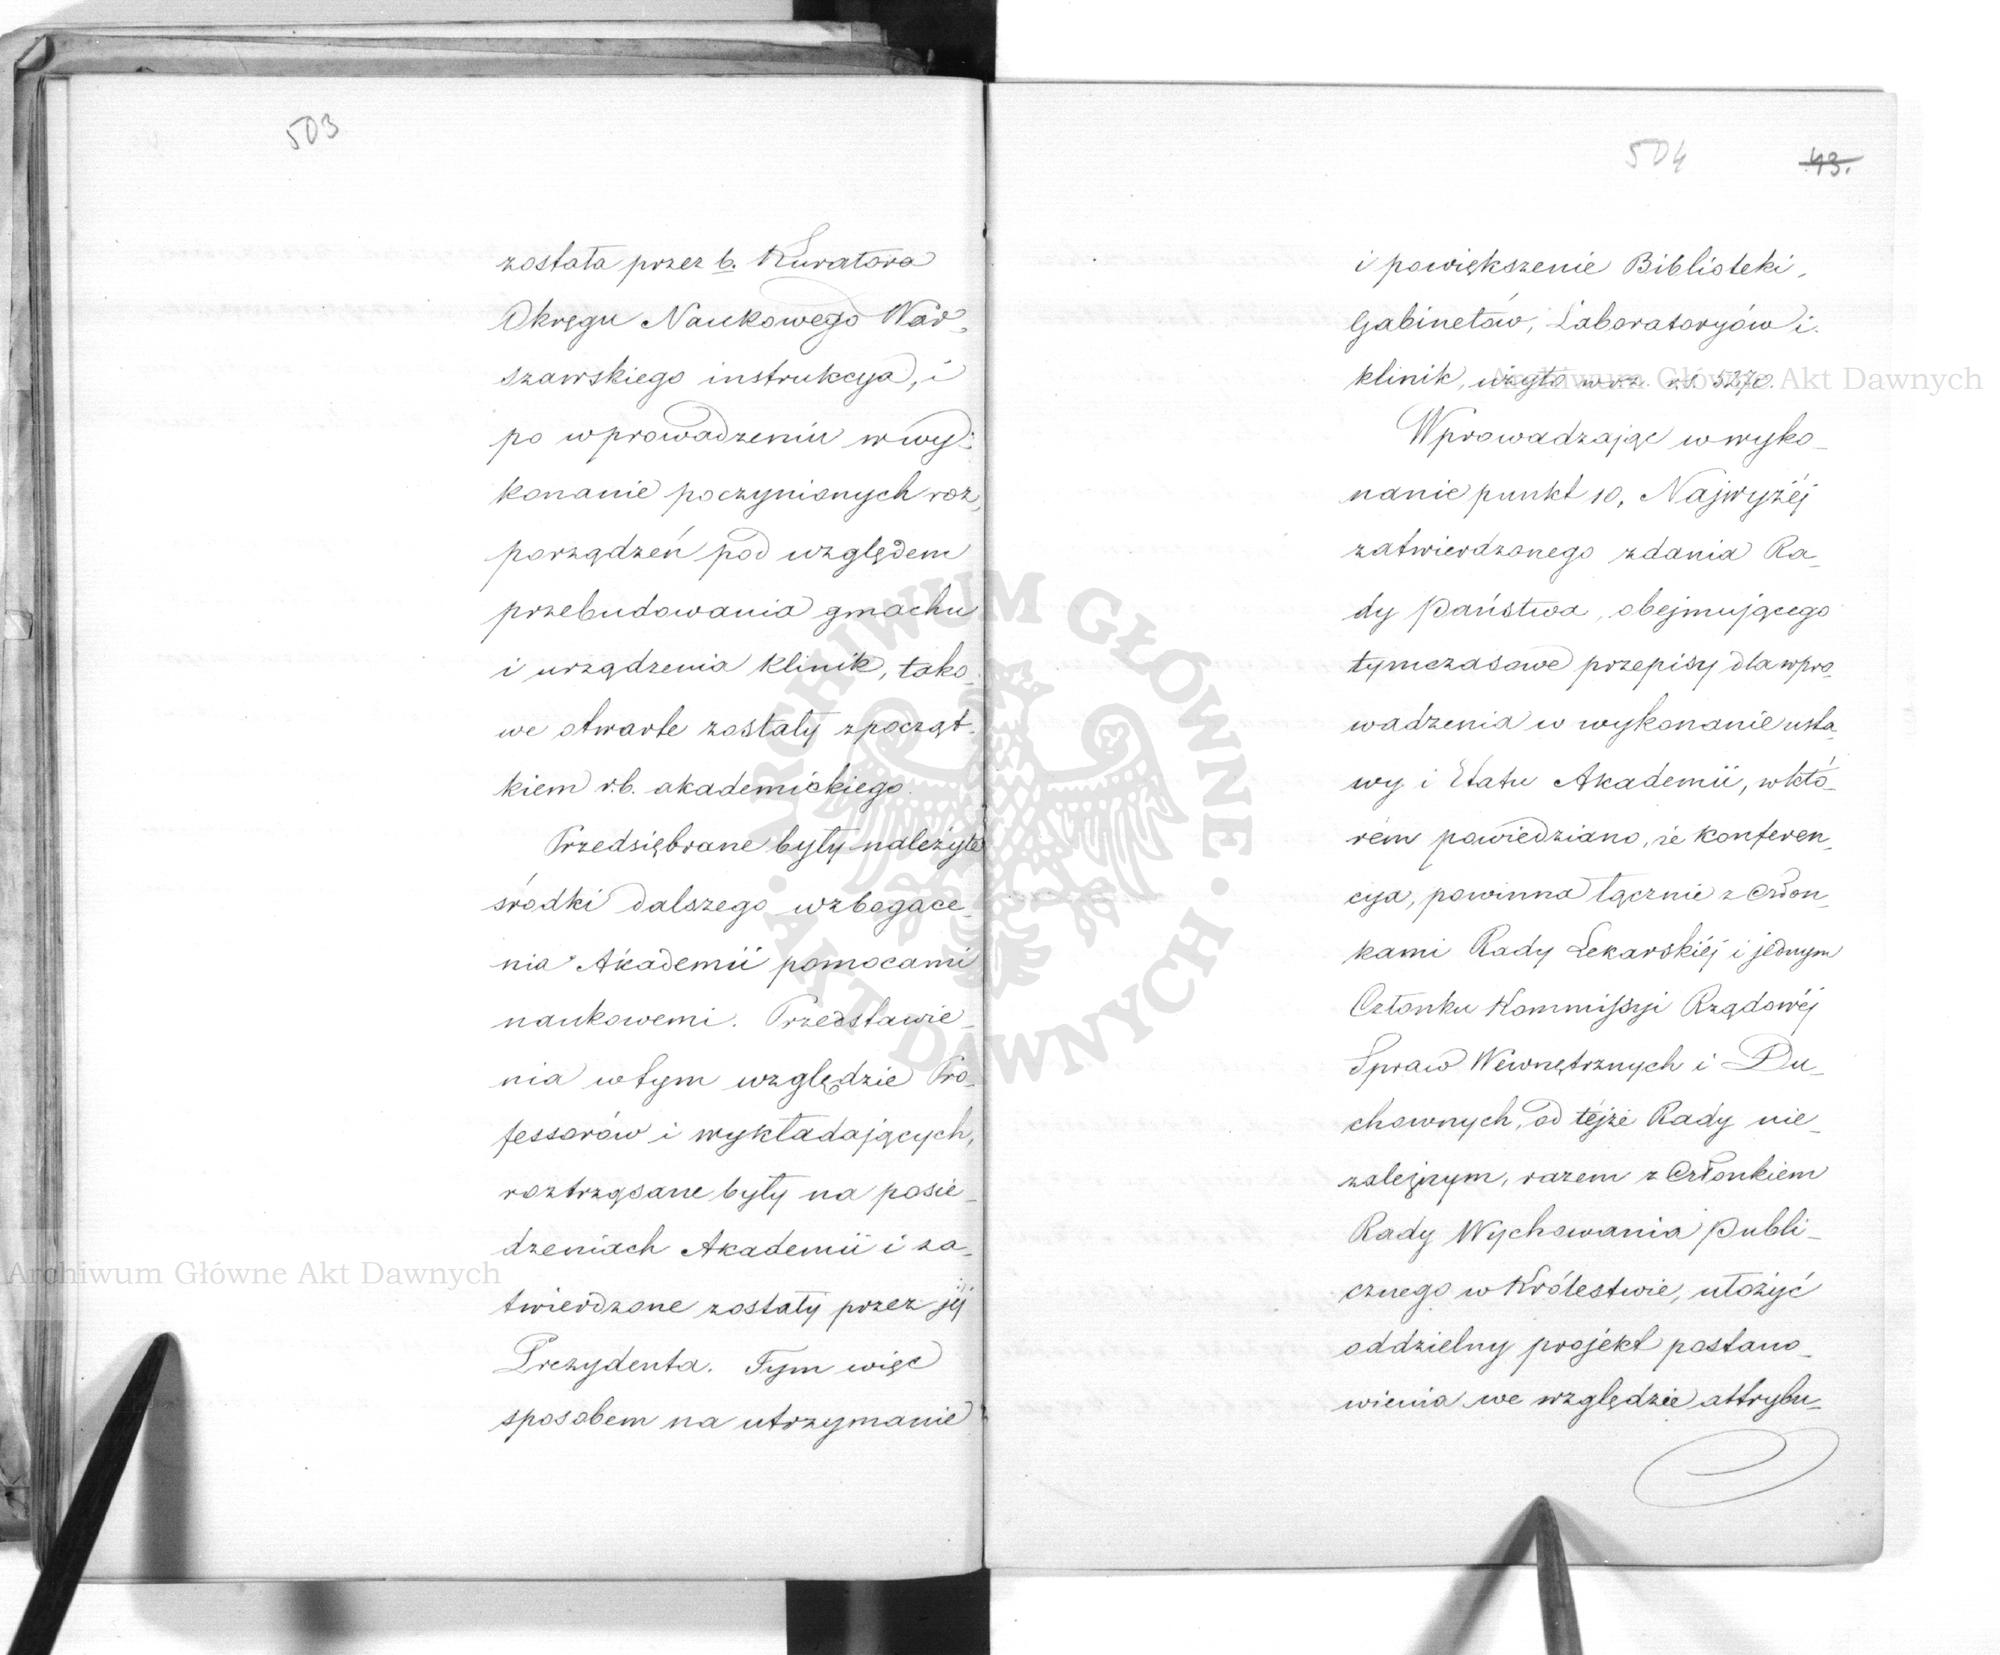 503
została przez b. Kuratora
Okręgu Naukowego War-
szawskiego instrukcya, i
po wprowadzeniu w wy-
konanie poczynionych roz-
porządzeń pod względem
przebudowania gmachu
i urządzenia klinik, tako-
we otwarte zostały z począt-
kiem r.b. akademickiego.
Przedsiębrane były należyte
środki dalszego wzbogace-
nia Akademii pomocami
naukowemi. Przedstawie-
nia w tym względzie Pro-
fessorów i wykładających,
roztrząsane były na posie-
dzeniach Akademii i za-
twierdzone zostały przez jéj
Prezydenta. Tym więc
sposobem na utrzymanie
504 43.
i powiększenie Biblioteki,
Gabinetów, Laboratoryów i
klinik, użyto w r.z. rs. 5270.
Wprowadzając w wyko-
nanie punkt 10, Najwyżéj
zatwierdzonego zdania Ra-
dy Państwa, obejmującego
tymczasowe przepisy dla wpro-
wadzenia w wykonanie usta-
wy i Etatu Akademii, w któ-
rém powiedziano, że konferen-
cya, powinna łącznie z Człon-
kami Rady Lekarskiéj i jednym
Członku Kommissyi Rządowéj
Spraw Wewnętrznych i Du-
chownych, od téjże Rady nie-
zależnym, razem z Członkiem
Rady Wychowania Publi-
cznego w Królestwie, ułożyć
oddzielny projekt postano-
wienia we względzie attrybu-
Archiwum Główne Akt Dawnych
Archiwum Główne Akt Dawnych
ARCHIWUM GŁÓWNE · AKT DAWNYCH ·